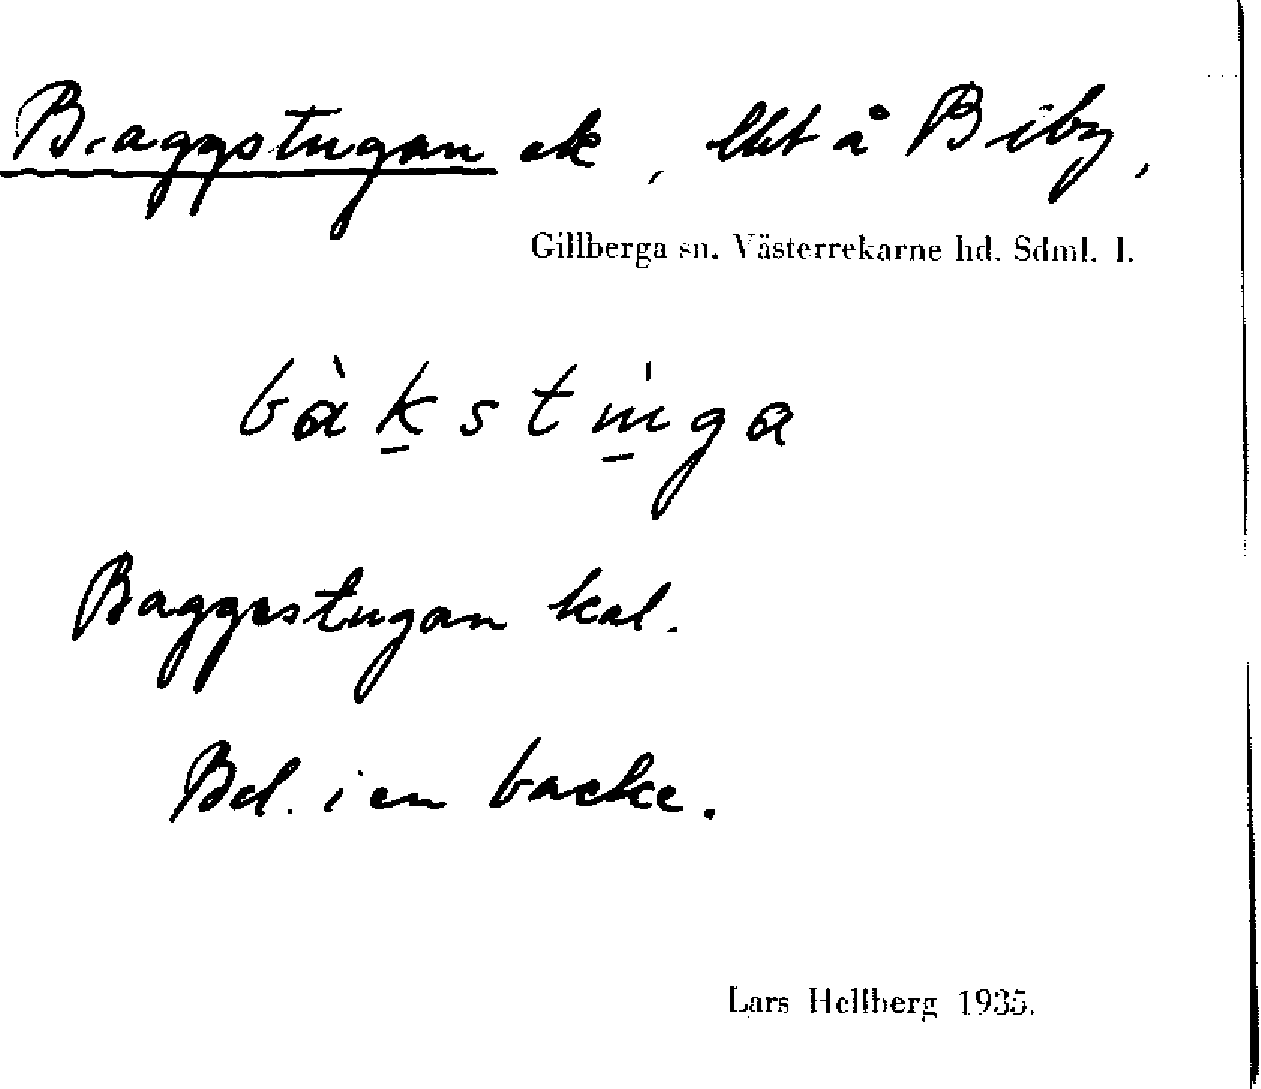 Baggstugan ek, lht å Biby,
Gillberga sn. Västerrekarne hd. Sdml. l.
bàkstu̍ga
Baggestugan kal.
Bel. i en backe.
Lars Hellberg 1935.